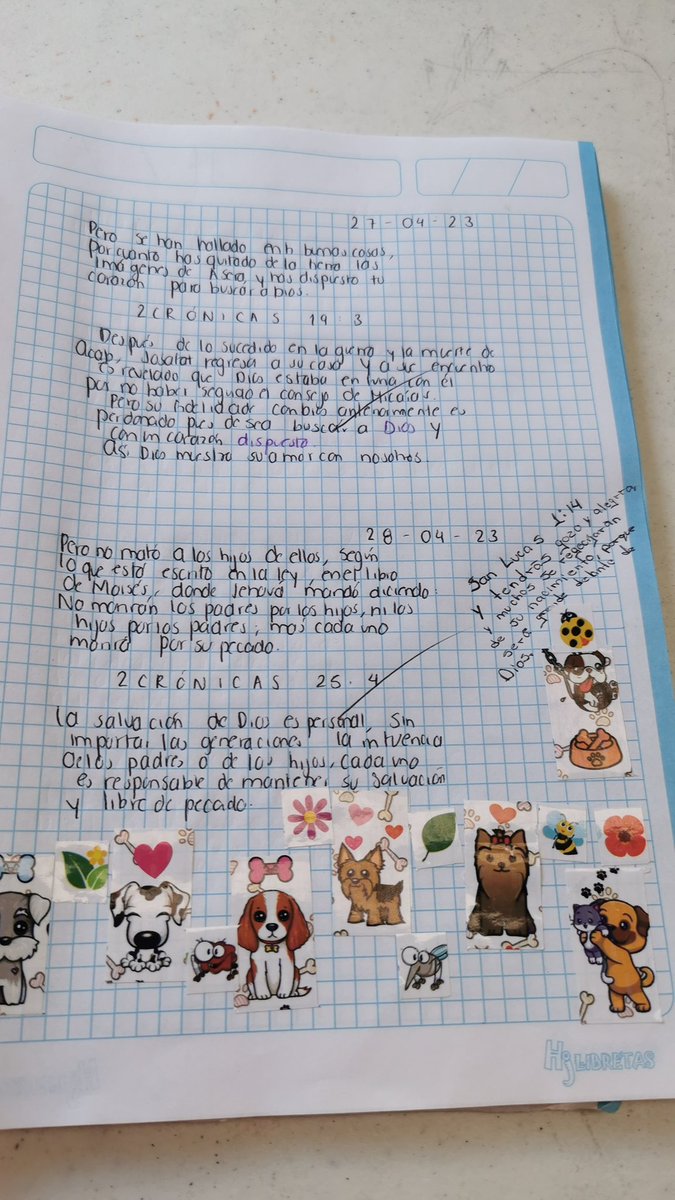 27-04-23
Pero se han hallado en ti buenas cosas,
por cuanto has quitado de la tierra las
imágenes de Asera, y has dispuesto tu
corazón para buscar a Dios.
2 CRÓNICAS 19:3
Después de lo sucedido en la guerra y la muerte de
Acab, Josafat regresa a su casa y a su encuentro
es revelado que Dios estaba en funa con él
por no haber seguido el consejo de Micaías.
Pero su fidelidad con Dios anteriormente es
perdonado pues desea buscar a Dios y
con un corazón dispuesto.
Así Dios muestra su amor con nosotros.
28-04-23
Pero no mató a los hijos de ellos, según
lo que está escrito en la ley, en el libro
de Moisés, donde Jehová mandó diciendo:
No morirán los padres por los hijos, ni los
hijos por los padres; mas cada uno
morirá por su pecado.
2 CRÓNICAS 25:4
La salvación de Dios es personal, sin
importar las generaciones, la influencia
de los padres o de los hijos, cada uno
es responsable de mantener su salvación
y libre de pecado.
San Lucas 1:14
y tendrás gozo y alegría
y muchos se regocijarán
de su nacimiento; porque
será grande delante de
Dios.
Hj LIBRETAS